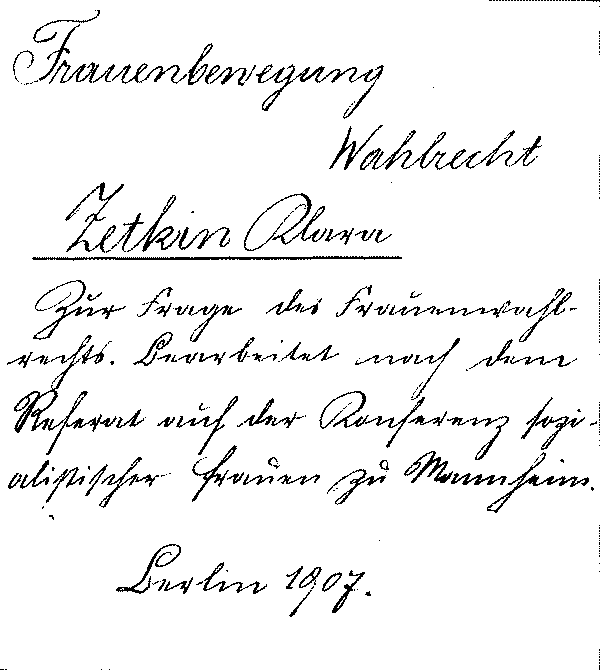 Frauenbewegung
Wahlrecht
Zetkin Klara
Zur Frage des Frauenwahl-
rechts. Bearbeitet nach dem
Referat auf der Konferenz sozi-
alistischer Frauen zu Mannheim.
Berlin 1907.